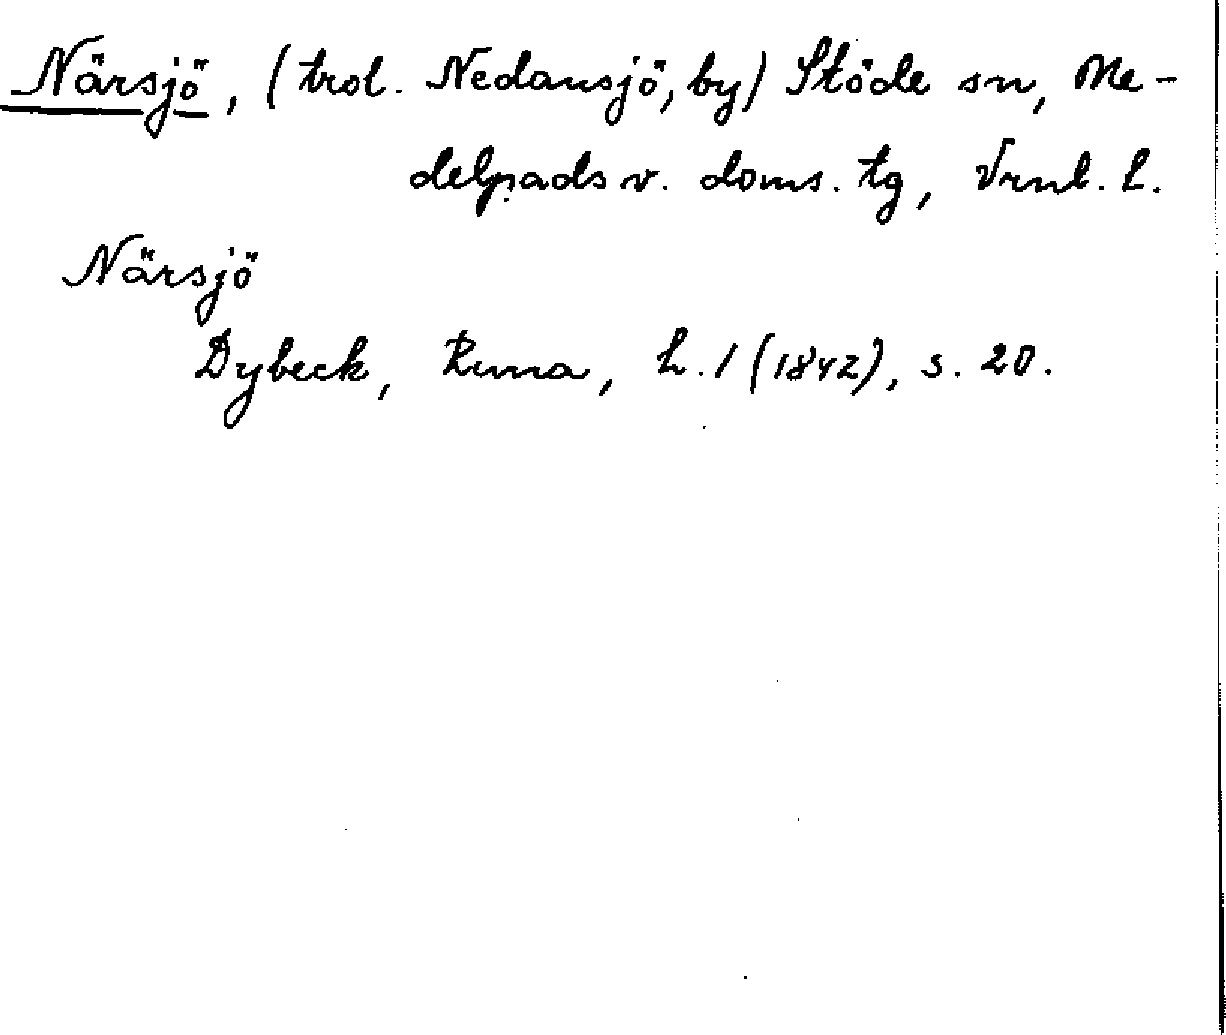 Närsjö, (trol. Nedansjö, by) Stöde sn, Me-
delpads v. doms. tg, Vrnl. l.
Närsjö
Dybeck, Runa, h. 1 (1842), s. 20.